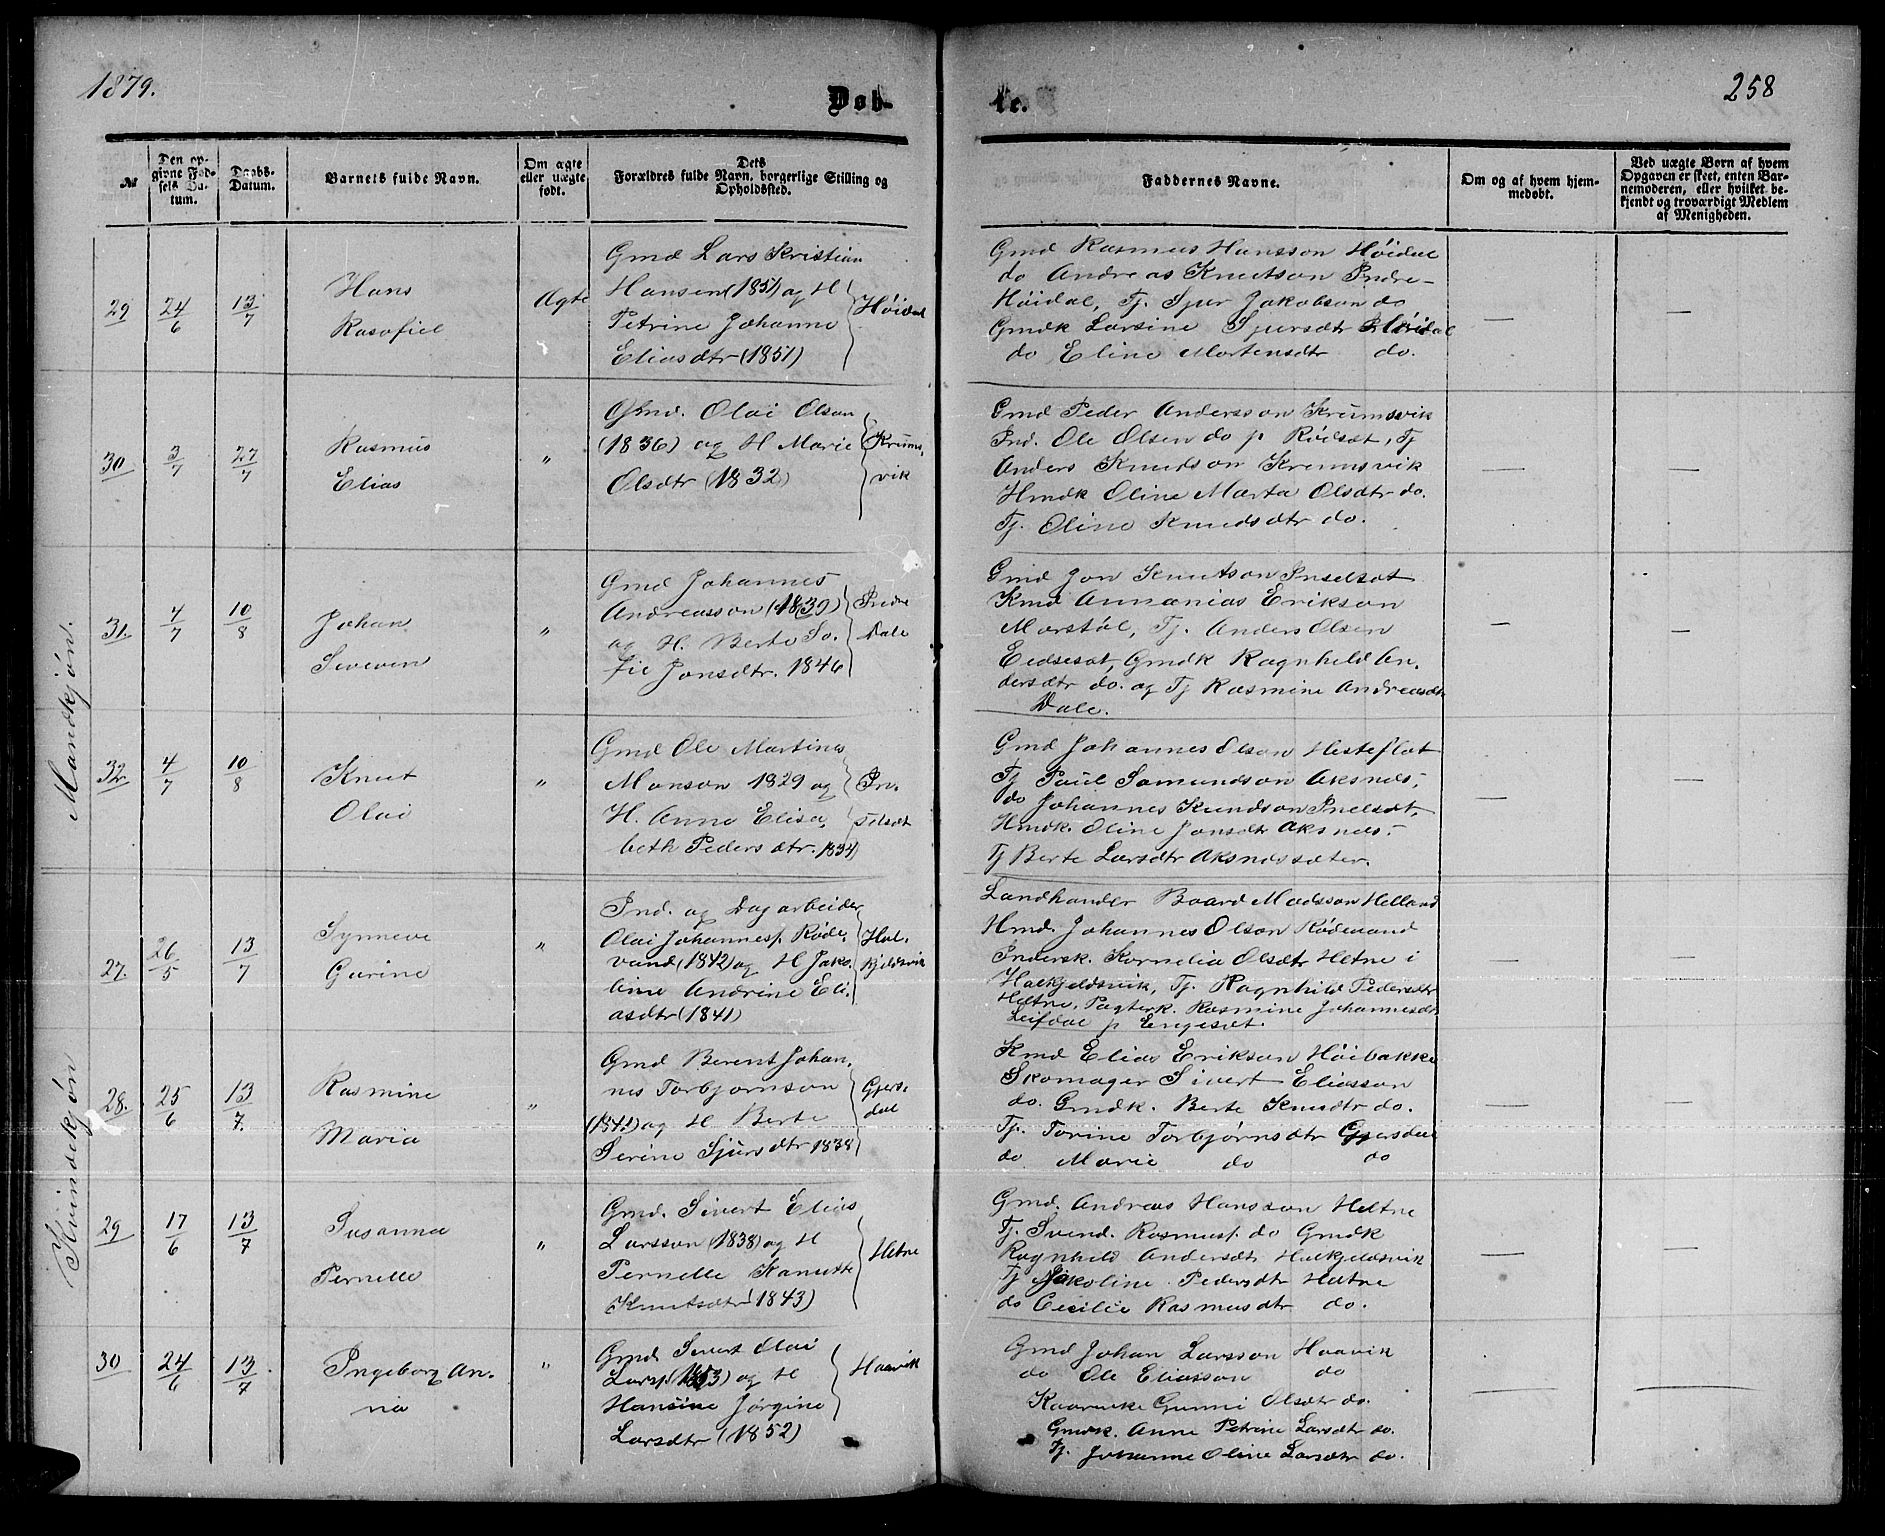 1879.
Døb-
te.
258
№
Den op-
givne Fød-
sels Da-
tum.
Daabs-
Datum.
Barnets fulde Navn.
Om ægte
eller uægte
født.
Dets
Forældres fulde Navn, borgerlige Stilling og
Opholdssted.
Faddernes Navne.
Om og af hvem hjem-
medøbt.
Ved uægte Børn af hvem
Opgaven er skeet, enten Bar-
nemoderen, eller hvilket be-
kjendt og troværdigt Medlem
af Menigheden.
Mandkjøn.
29 24/6 13/7
Hans
Rasofiel
Ægte
Gmd Lars Kristian
Hansen (1851) og H
Petrine Johanne
Eliasdtr (1851)
Høidal
Gmd Rasmus Hansson Høidal
do Andreas Knutson Indre-
Høidal, Tj. Sjur Jakobson do
Gmdk Larsine Sjursdtr Høidal
do Eline Mortensdtr do.
— —
30 3/7 27/7
Rasmus
Elias
"
Gmd. Olai Olson
(1836) og H Marie
Olsdtr (1832)
Krums-
vik
Gmd Peder Andersson Krumsvik
Ind. Ole Olsen do p Rödsæt, Tj
Anders Knudson Krumsvik
Hmdk Oline Marta Olsdtr do.
Tj. Oline Knudsdtr do.
— —
31. 4/7 10/8
Johan
Severin
"
Gmd Johannes
Andreasson (1839)
og H. Berte So-
fie Jonsdtr. 1846
Indre
Dale
Gmd Jon Knutson Inselsæt
Kmd Annanias Erikson
Marstöl, Tj. Anders Olsen
Eidsesæt, Gmdk Ragnhild An-
dersdtr do. og Tj Rasmine Andreasdtr
Dale.
— —
32. 4/7 10/8
Knut
Olai
"
Gmd Ole Martinus
Monson 1829 og
H. Anne Elisa-
beth Pedersdtr. 1834
In-
selsæt
Gmd Johannes Olson Hesteflot
Tj Paul Samundson Aksnes,
do Johannes Knudson Inselsæt,
Hmdk. Oline Jonsdtr Aksnes.
Tj Berte Larsdtr Aksnessæter.
— —
Kvindekjøn
27. 26/5 13/7
Synneve
Gurine
"
Ind. og Dagarbeider
Olai Johanness. Røde-
vand (1842) og H Jako-
bine Andrine Eli-
asdtr (1841)
Hal-
kjeldsvik
Landhandler Baard Madsson Helland
Hmd. Johannes Olson Rödevand
Indersk. Kornelia Olsdtr Heltne i
Halkjeldsvik, Tj. Ragnhild Pedersdtr
Heltne, Pagterk. Rasmine Johannesdtr
Leifdal p Engeset.
— —
28. 25/6 13/7.
Rasmine
Maria
"
Gmd Berent Johan-
nes Torbjornson
(1841) og H Berte
Serine Sjursdtr 1838
Gjers-
dal
Kmd Elias Erikson Høibakke
Skomager Sivert Eliasson
do. Gmdk. Berte Knudtr do.
Tj. Torine Torbjørnsdtr Gjersdal
do Marie do do
— —
29 17/6 13/7
Susanna
Pernelle
"
Gmd. Sivert Elias
Larsson (1838) og H
Pernelle Kanutte
Knutsdtr 1843)
Heltne
Gmd. Andreas Hansson Heltne
Tj. Svend. Rasmuss. do Gmdk
Ragnhild Andersdtr Halkjeldsvik
Tj Jakoline Pedersdtr Heltne
do Cecilie Rasmusdtr do.
— —
30 24/6 13/7
Ingeborg An-
na
"
Gmd Sivert Olai
Larss (1853) og H
Hansine Jørgine
Larsdtr (1852)
Haavik
Gmd Johan Larsson Haavik
do Ole Eliasson do
Kaarmke Gunni Olsdtr do.
Gmdk. Anne Petrine Larsdtr do.
Tj. Johanne Oline Larsdtr do.
— —